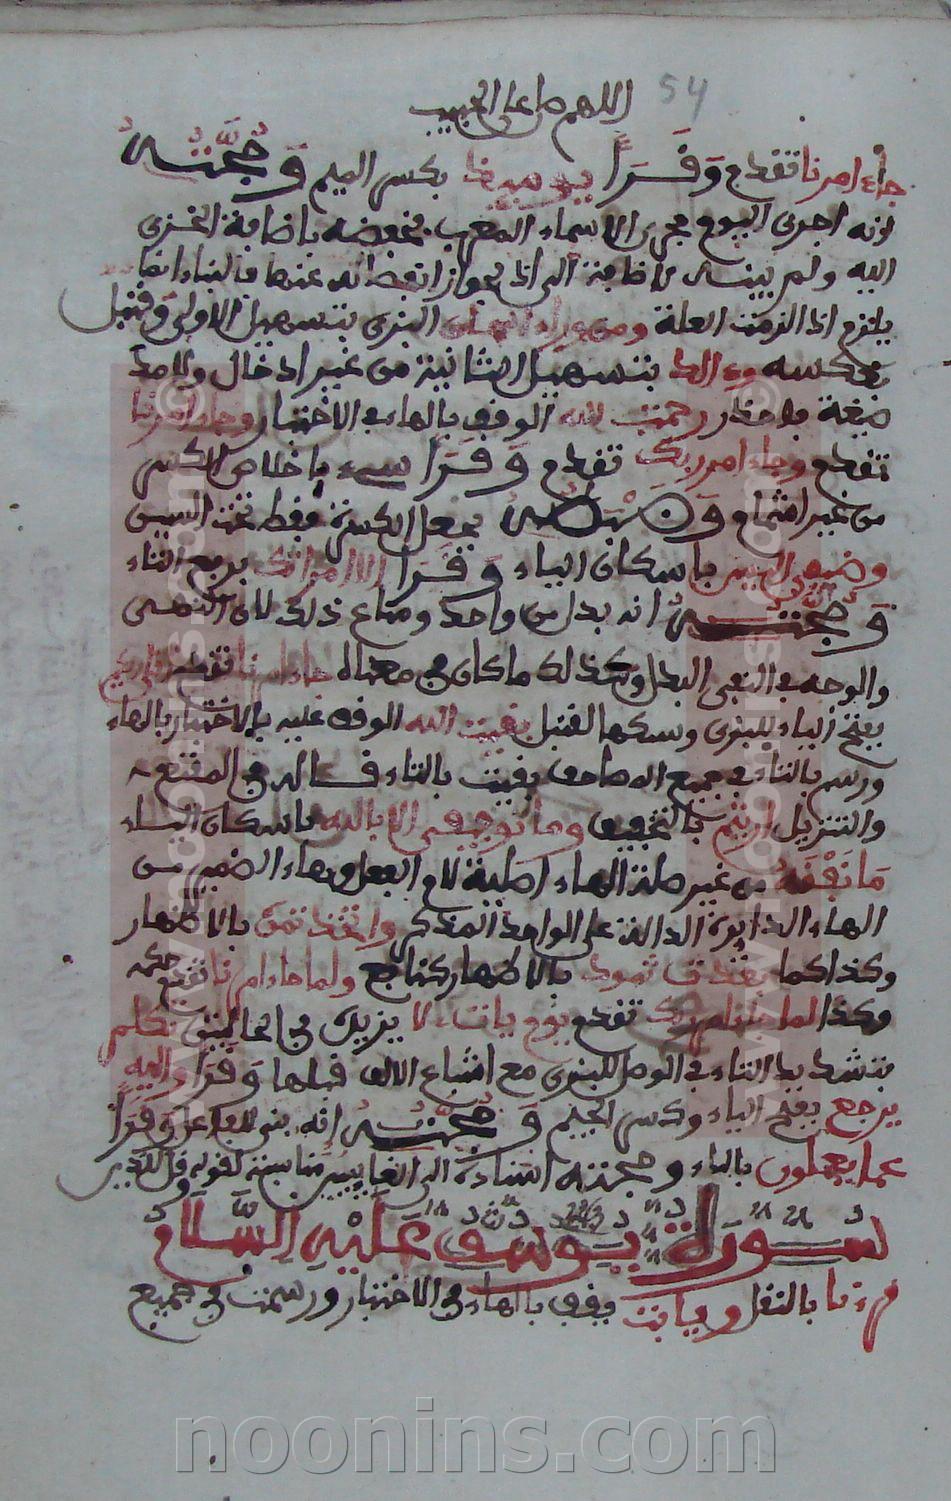 54
اللهم صل على الحبيب
جاء امرنا تقدم وَقَرَأَ يوميذ بكسر الميم وَحُجَّتُهُ
انه اجرى اليوم مجرى الاسماء المعرب فخفضه باضافة الخزى
اليه ولم يبنه لاضافته الى اذ لجواز انفصاله عنها والبناء انما
يلزم اذا لزمت العلة ومن وراء اسحاق البزى بتسهيل الاولى وقنبل
ءالد بتسهيل الثانية من غير ادخال ولامد
رحمت الله الوقف بالهاء في الاختبار وجاء امرنا
تقدم وجاء امر ربك تقدم وَقَرَأَ سىء باخلاص الكسر
من غير اشمام يجعل الكسرة فقط تحت السين
وضيفى اليس باسكان الياء وَقَرَأَ الا امراتك برفع التاء
وَحُجَّتُهُ انه بدل من واحد وساغ ذلك لان النهى
والوجه في النفى البدل وكذلك ما كان في معناه جاء امرنا تقدم انى اريكم
بفتح الياء للبزى وسكنها لقنبل بقيت الله الوقف عليه بالاختبار بالهاء
ورسم بالتاء في جميع المصاحف بقيت بالتاء قاله في المقنع
والتنزيل ارايتم بالتخفيف وما توفيقى الا بالله باسكان الياء
مَا نَفْقَهُ من غير صلة الهاء اصلية لام الفعل وهاء الضمير هى
الهاء الزايدة الدالة على الواحد المذكر واتخذتموه بالاظهار
وكذا كما بعدت ثمود بالاظهار كنافع ولما جاء امرنا تقدم حكمه
وكذا لما جاء امر ربك تقدم يوم ياتـ لا يزيدان في الحالتين تكلم
بتشديد التاء في الوصل للبزى مع اشباع الالف قبلها وَقَرَأَ واليه
يرجع بفتح الياء وكسر الجيم وَحُجَّتُهُ انه بنى للفاعل وقرأ
عما يعملون بالياء وحجته اسناده الى الغايبين مناسبة لقوله وقل للذين
سُورَةُ يُوسُفَ عَلَيْهِ السَّلَام
قرءنا بالنقل ويابت يقف بالهاء في الاختبار ورسمت في جميع
noonins.com
www.noonins.com ©
www.noonins.com ©